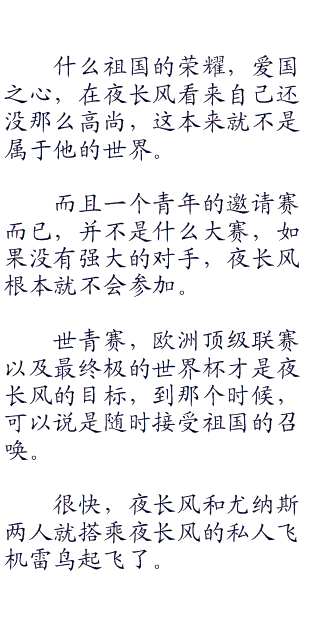 什么祖国的荣耀，爱国
之心，在夜长风看来自己还
没那么高尚，这本来就不是
属于他的世界。
而且一个青年的邀请赛
而已，并不是什么大赛，如
果没有强大的对手，夜长风
根本就不会参加。
世青赛，欧洲顶级联赛
以及最终极的世界杯才是夜
长风的目标，到那个时候，
可以说是随时接受祖国的召
唤。
很快，夜长风和尤纳斯
两人就搭乘夜长风的私人飞
机雷鸟起飞了。